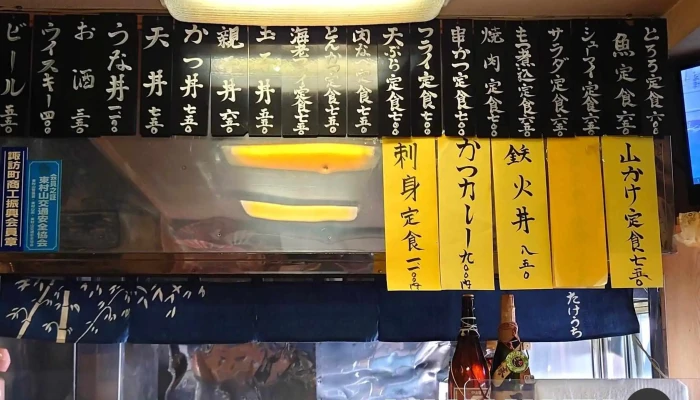 とろろ定食六五〇
魚定食六五〇
シューマイ定食六五〇
サラダ定食六五〇
もつ煮込定食六五〇
焼肉定食七〇〇
串かつ定食七〇〇
フライ定食七五〇
天ぷら定食七五〇
肉なべ定食七五〇
とんかつ定食七五〇
海老フライ定食七五〇
玉子丼 五五〇
親子丼 六五〇
かつ丼 七五〇
天丼 七五〇
うな丼 一一〇〇
お酒 三五〇
ウイスキー四〇〇
ビール 五五〇
山かけ定食七五〇
鉄火丼 八五〇
かつカレー九〇〇円
刺身定食一一〇〇円
諏訪町商工振興会員章
会員之証
東村山交通安全協会
たけうち